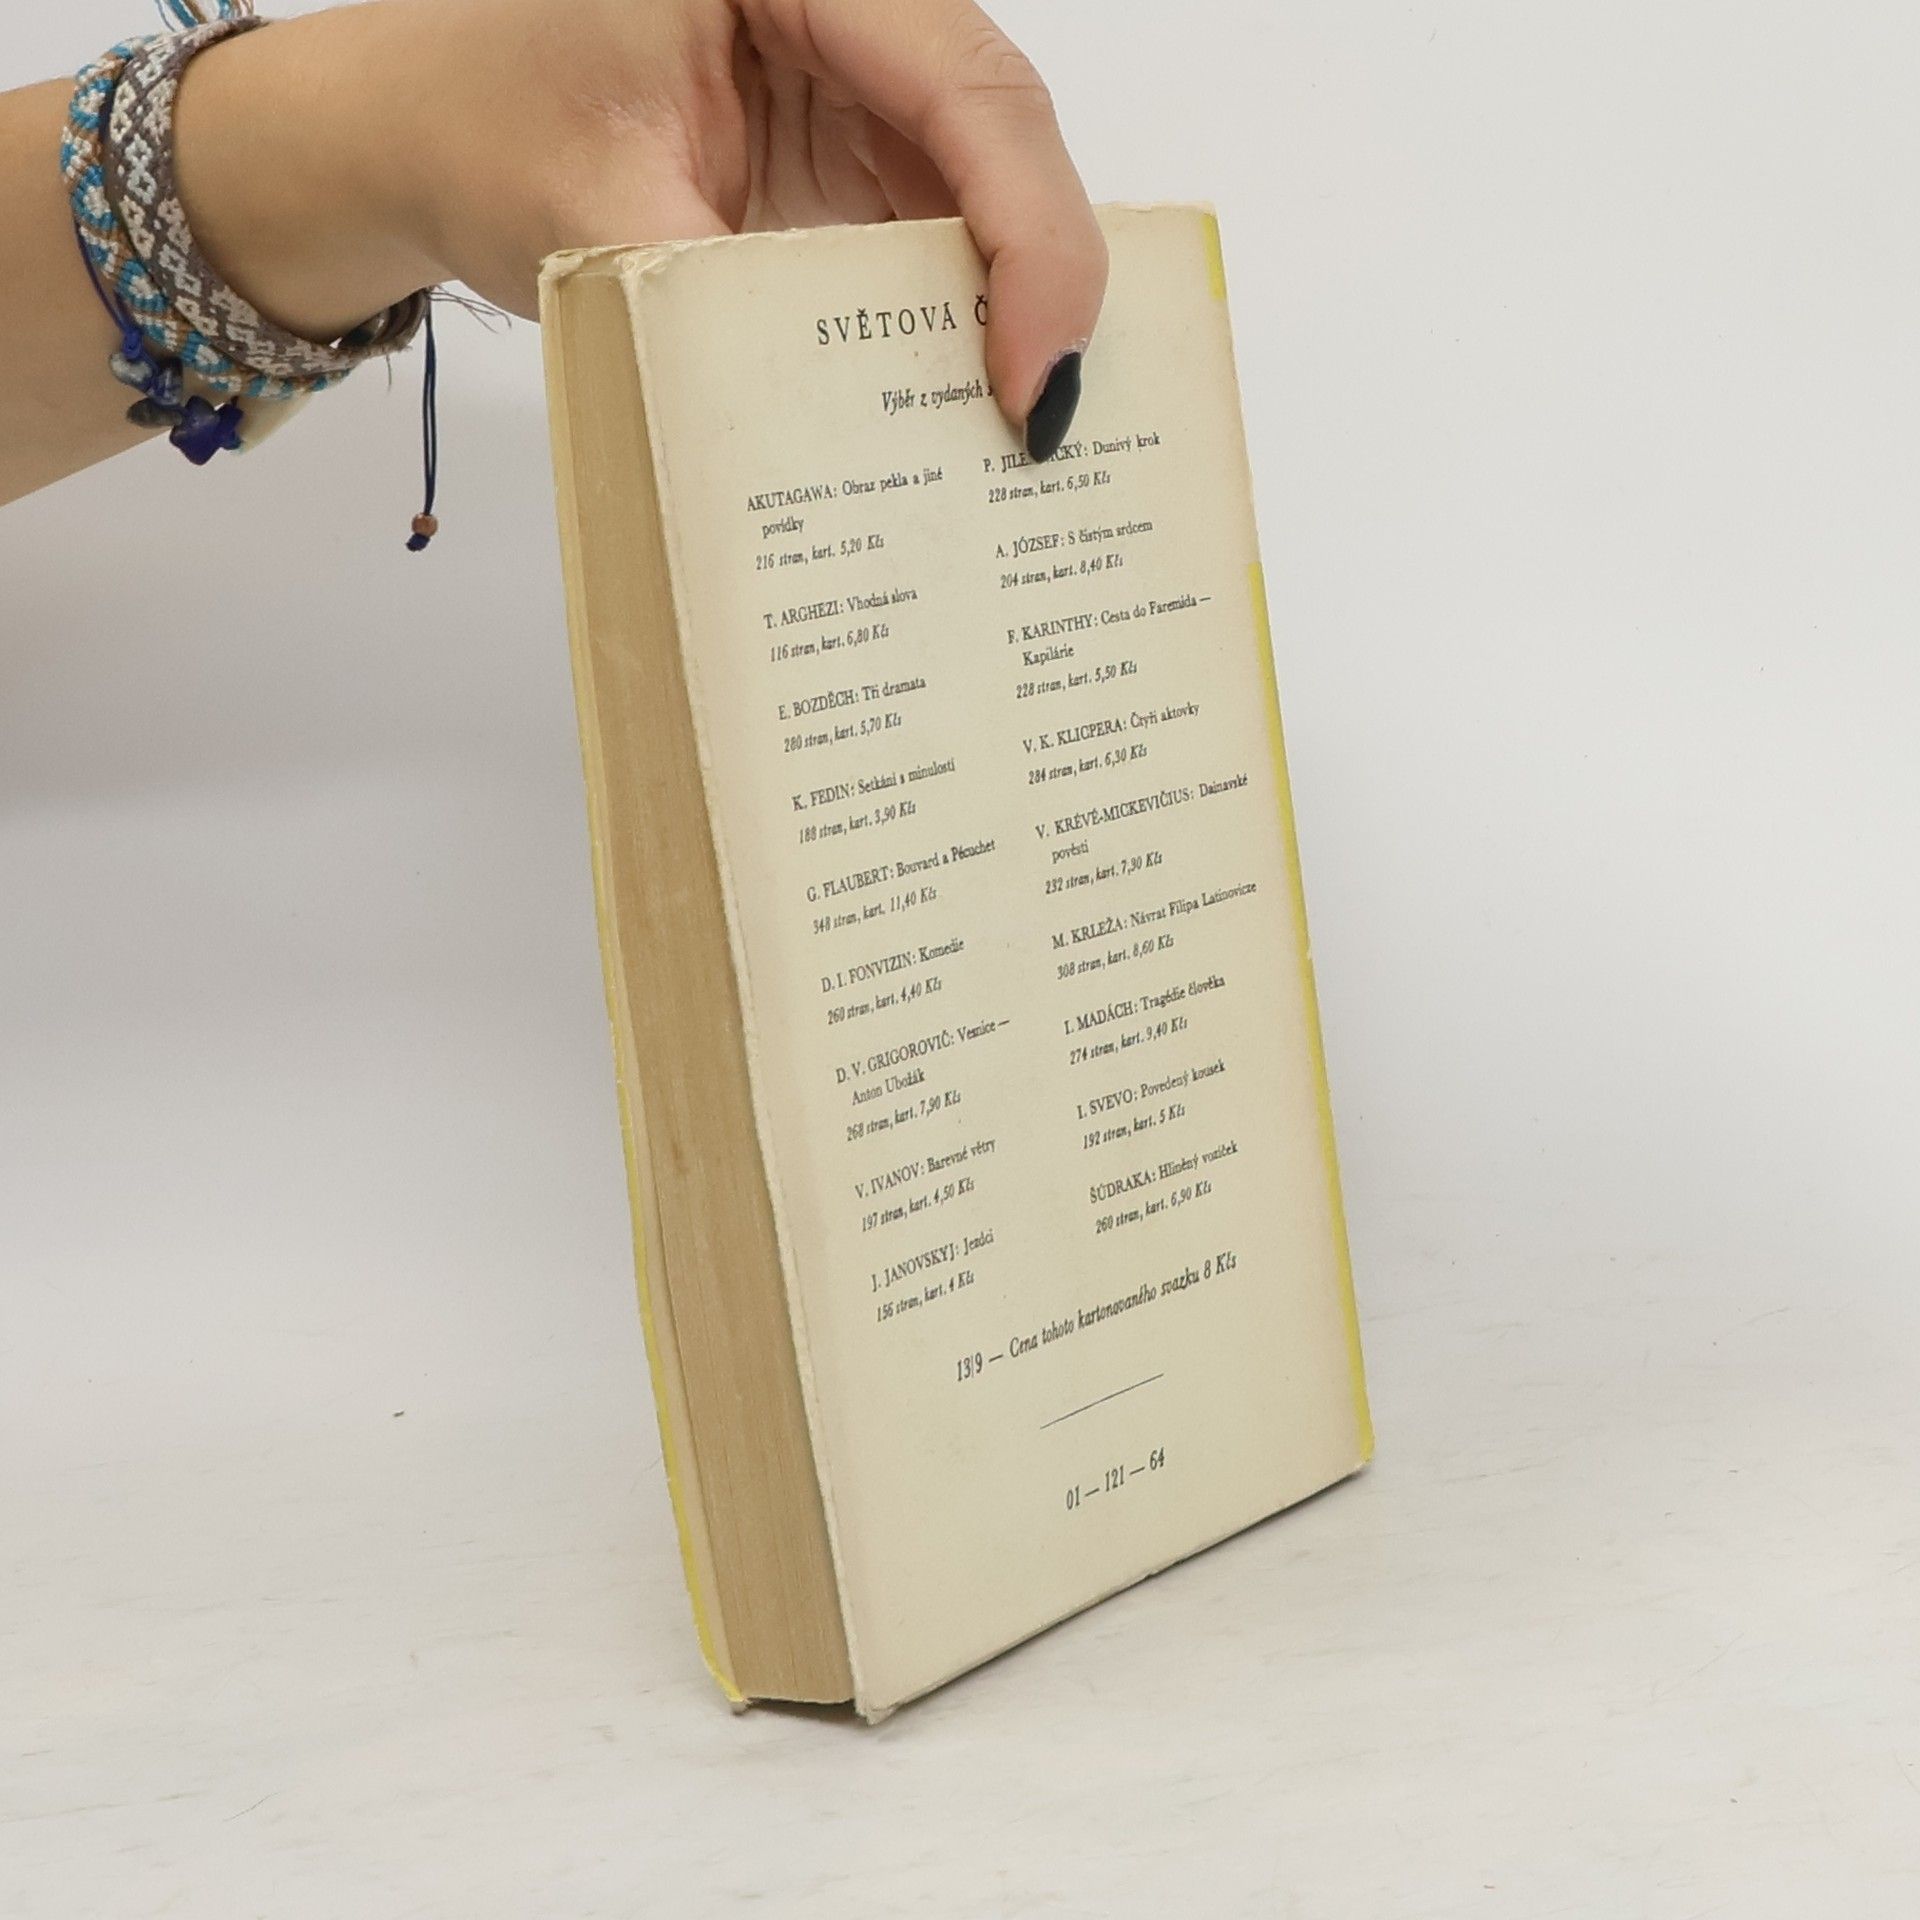 SVĚTOVÁ Č
Výběr z vydaných
AKUTAGAWA: Obraz pekla a jiné
povídky
216 stran, kart. 5,20 Kčs
T. ARGHEZI: Vhodná slova
116 stran, kart. 6,80 Kčs
E. BOZDĚCH: Tři dramata
280 stran, kart. 5,70 Kčs
K. FEDIN: Setkání s minulostí
188 stran, kart. 3,90 Kčs
G. FLAUBERT: Bouvard a Pécuchet
348 stran, kart. 11,40 Kčs
D. I. FONVIZIN: Komedie
260 stran, kart. 4,40 Kčs
D. V. GRIGOROVIČ: Vesnice —
Anton Ubožák
268 stran, kart. 7,90 Kčs
V. IVANOV: Barevné větry
197 stran, kart. 4,50 Kčs
J. JANOVSKYJ: Jezdci
156 stran, kart. 4 Kčs
P. JILE ICKÝ: Dunivý krok
228 stran, kart. 6,50 Kčs
A. JÓZSEF: S čistým srdcem
204 stran, kart. 8,40 Kčs
F. KARINTHY: Cesta do Faremida —
Kapilárie
228 stran, kart. 5,50 Kčs
V. K. KLICPERA: Čtyři aktovky
284 stran, kart. 6,30 Kčs
V. KRÉVÉ-MICKEVIČIUS: Dainavské
pověsti
232 stran, kart. 7,30 Kčs
M. KRLEŽA: Návrat Filipa Latinovicze
308 stran, kart. 8,60 Kčs
I. MADÁCH: Tragédie člověka
274 stran, kart. 9,40 Kčs
I. SVEVO: Povedený kousek
192 stran, kart. 5 Kčs
ŠÚDRAKA: Hliněný vozíček
260 stran, kart. 6,90 Kčs
13|9 — Cena tohoto kartonovaného svazku 8 Kčs
01 — 121 — 64